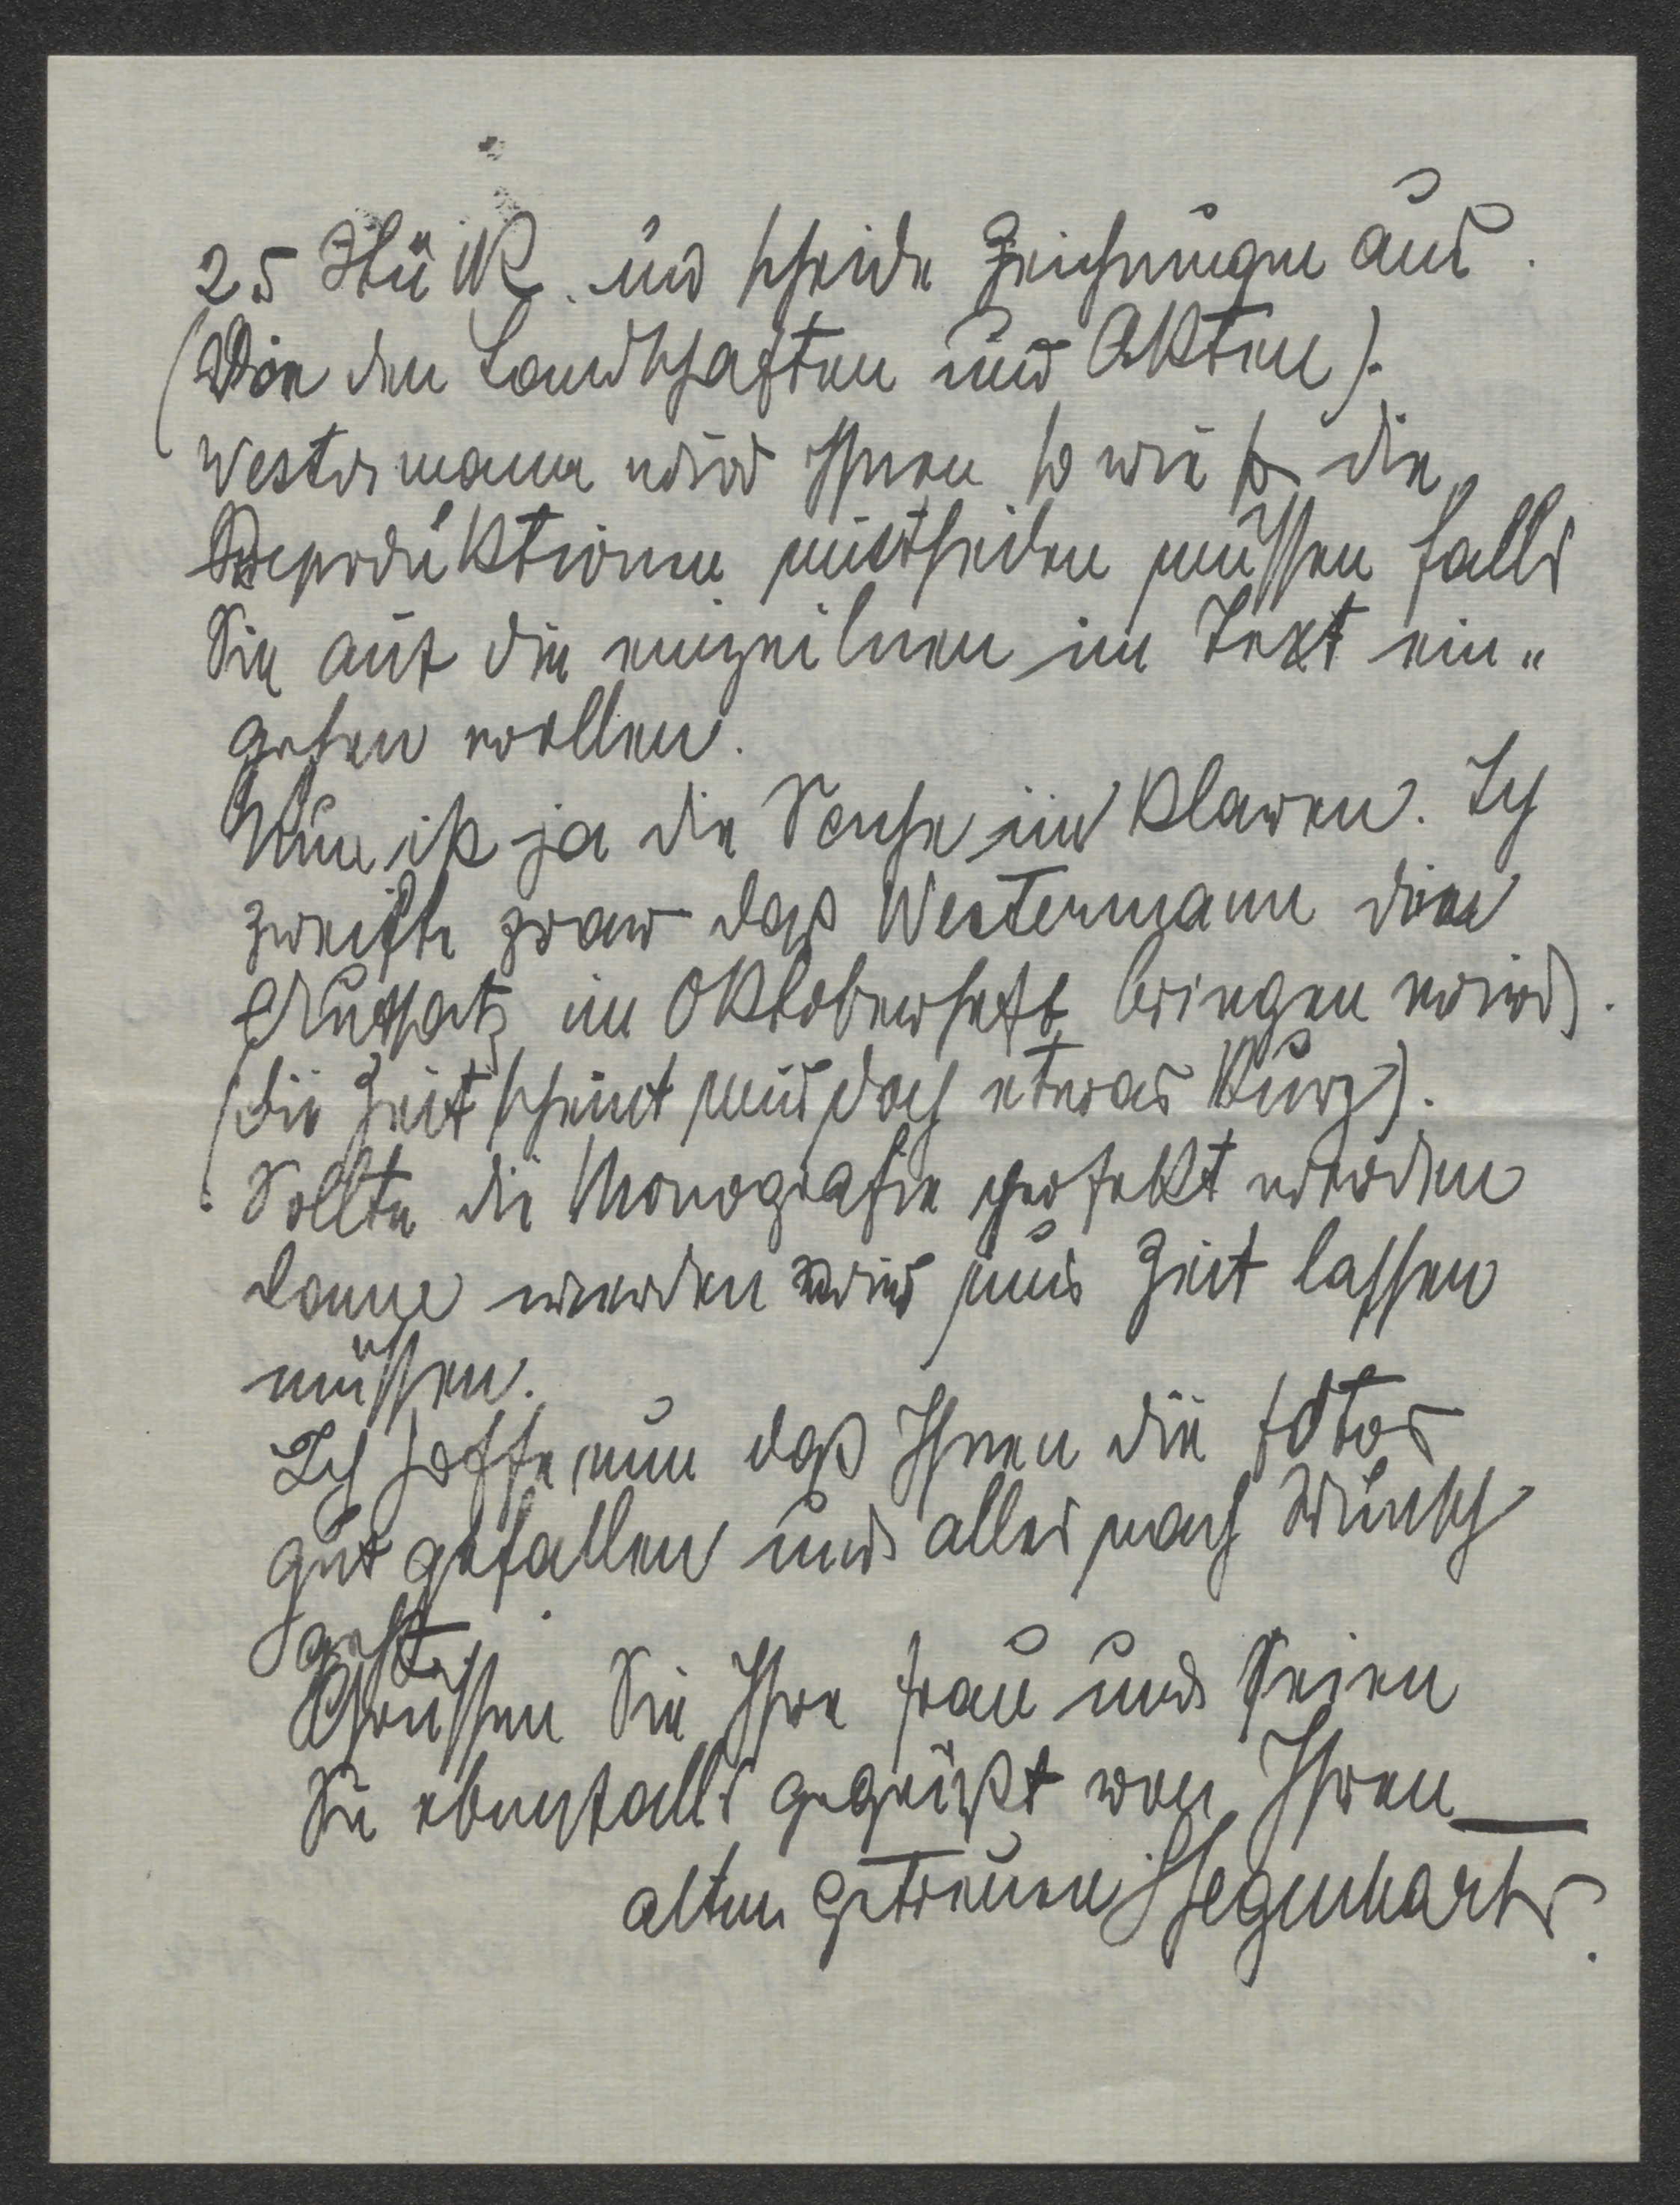 25 Stück und scheide Zeichnungen aus.
(Von den Landschaften und Akten).
Westermann wird Ihnen so wie so die
Reproduktionen mitteilen müssen falls
Sie auf die einzeilnen im Text ein„
gehen wollen.
Nun ist ja die Sache im Klaren. Ich
zweifle zwar daß Westermann den
Aufsatz im Oktoberheft bringen wird.
(Die Zeit scheint mir doch etwas Kurz).
Sollte die Monografie perfekt werden
dann werden wir uns Zeit lassen
müssen.
Ich hoffe nun daß Ihnen die fotos
gut gefallen und alles nach Wunsch
geht.
Grüssen Sie Ihre Frau und Seien
Sie ebenfalls gegrüßt von Ihren
alten getreuen Hegenbarth.